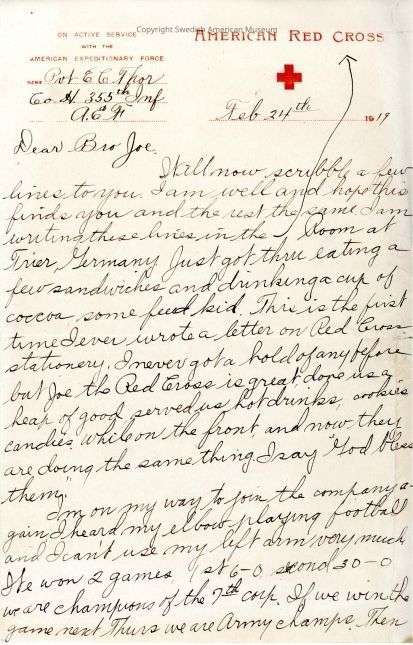 Copyright Swedish American Museum
ON ACTIVE SERVICE
WITH THE
AMERICAN EXPEDITIONARY FORCE
AMERICAN RED CROSS
NAME Pvt E. C. Thor
Co H 355th Inf
A. E. F.
Feb 24th 1919
Dear Bro Joe.
Will now scribble a few
lines to you. I am well and hope this
finds you and the rest the same I am
writing these lines in the Room at
Trier, Germany. Just got thru eating a
few sandwiches and drinking a cup of
coccoa some feed kid. This is the first
time I ever wrote a letter on Red Cross
stationery. I never got a hold of any before
but Joe the Red Cross is great, done us a
heap of good served us hot drinks, cookies
candies, while on the front, and now they
are doing the same thing I say "God bless
them."
I'm on my way to join the company a-
gain I heard my elbow playing football
and I cant use my left arm very much
We won 2 games 1st 6-0 second 30-0
we are champions of the 7th corp. If we win the
game next Thurs we are Army champs. Then